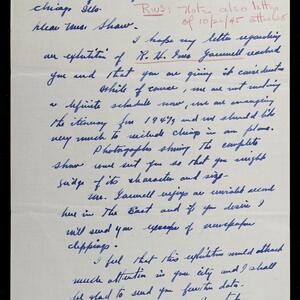 Chicago Ills.
RWS: Note also letter
of 10/21/45 attached
Dear Mr. Shaw.
I hope my letter regarding
an exhibition of R. H. Ives Gammell reached
you and that you are giving it consideration.
While of course, we are not making
a definite schedule now, we are arranging
the itinerary for 1947 and we should like
very much to include Chicago in our plans.
Photographs showing the complete
show were sent you so that you might
judge of its character and size.
Mr. Gammell enjoys an unrivaled record
here in the East and if you desire I
will send you of newspaper
clippings.
I feel that this exhibition would attract
much attention in your city and I shall
be glad to send you further data.